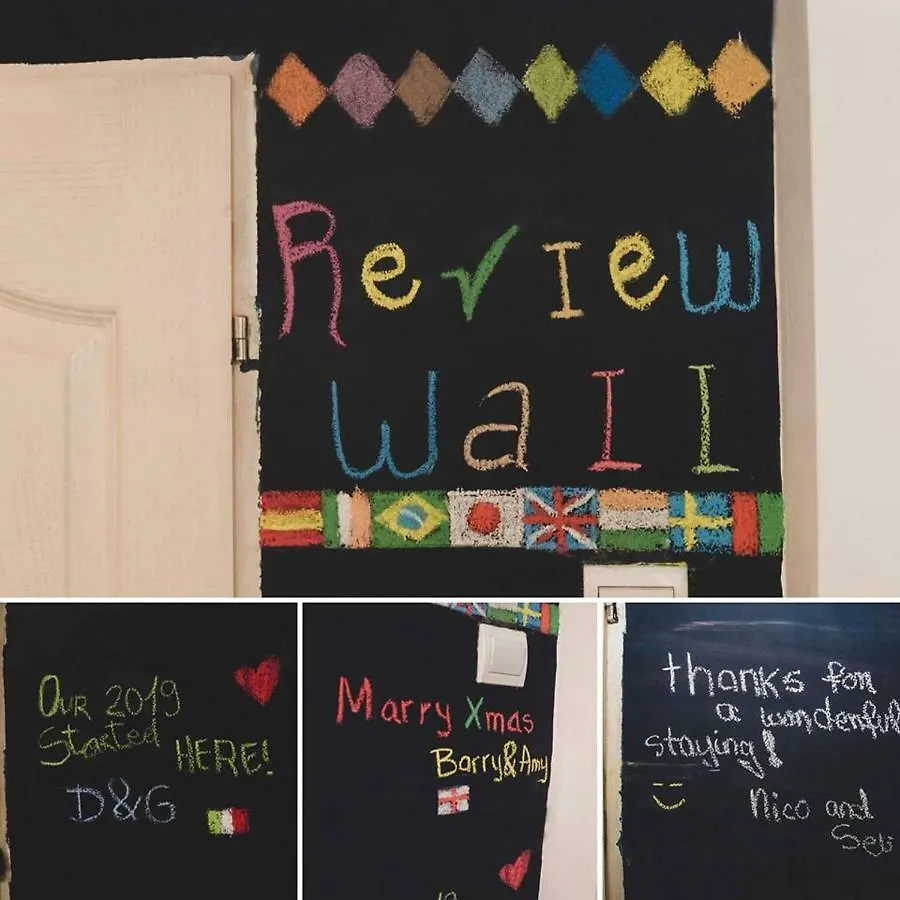 Review
Wall
Our 2019
Started
HERE!
D&G
Marry Xmas
Barry&Amy
thanks for
a wonderful
staying!
Nico and